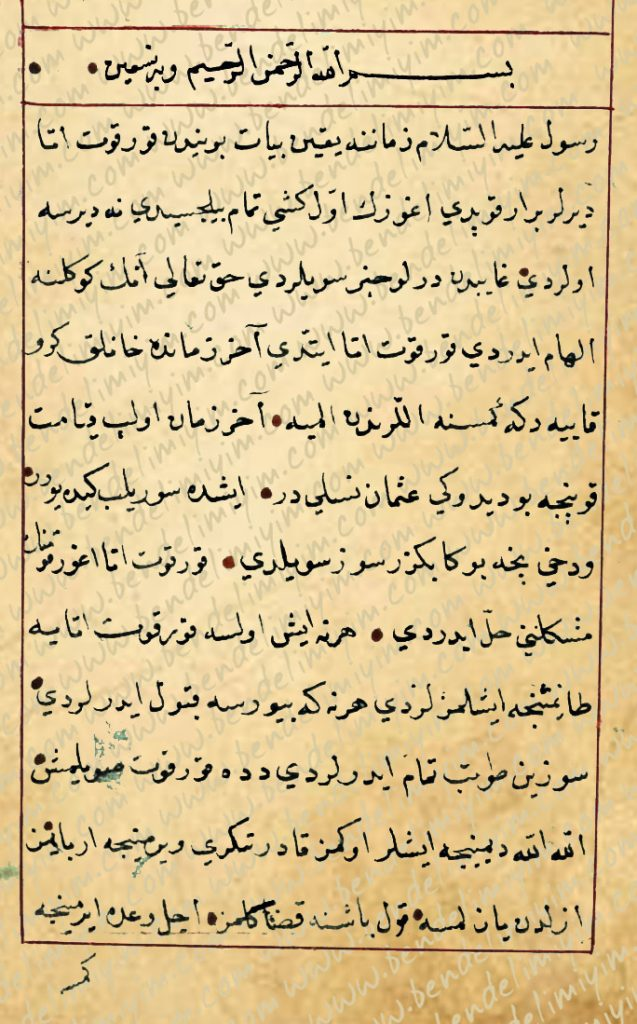 بسم الله الرحمن الرحيم وبه نستعين
رسول عليه السلام زماننه يقين بيات بويندن قورقوت اتا
ديرلر بر ار قوپدي اغوزك اول كشي تمام بيلجسيدي نه ديرسه
اولردي غايبدن درلو خبر سويلردي حق تعالى آنك كوكلنه
الهام ايدردي قورقوت اتا ايتدي آخر زمانده خانلق كرو
قاييه دكه كمسنه اللرندن الميه آخر زمان اولب قيامت
قوپنجه بو ديدوكي عثمان نسلي در ايشده سوريلب كيده يورر
ودخي نجه بوكا بكزر سوز سويلدي قورقوت اتا اغوز قومنك
مشكلني حل ايدردي هر نه ايش اولسه قورقوت اتايه
طانشمنجه ايشلمزلردي هر نه كه بيورسه قبول ايدرلردي
سوزين طوتب تمام ايدرلردي دده قورقوت سويلمش
الله الله ديمينجه ايشلر اوكمز قادر تنكري ويرمينجه ار بايمز
ازلدن يازلمسه قول باشنه قضا كلمز اجل وعده ايرمينجه
كمسه